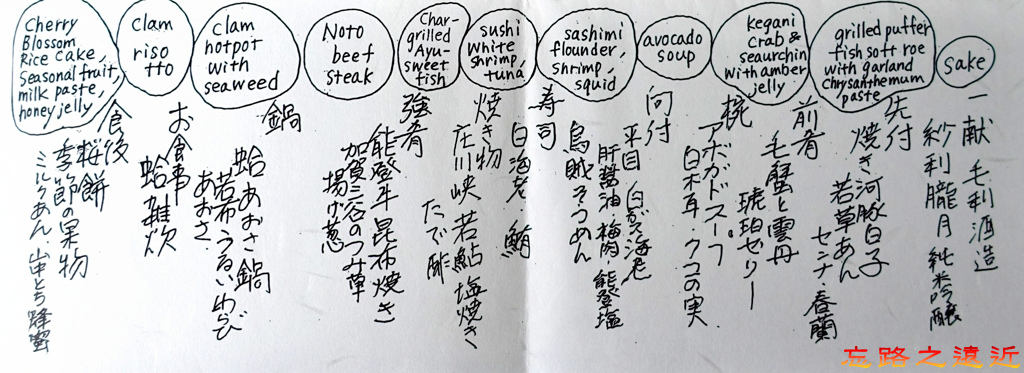 sake
一献 毛利酒造
紗利朧月 純米吟醸
grilled puffer
fish soft roe
with garland
chrysanthemum
paste
先付
焼き河豚白子
若草あん
センナ・春蘭
kegani
crab &
seaurchin
with amber
jelly
前肴
毛蟹と雲丹
琥珀ゼリー
avocado
soup
椀
アボガドスープ
白木耳・クコの実
sashimi
flounder,
shrimp,
squid
向付
平目 白がス海老
肝醤油 梅肉 能登塩
烏賊そうめん
sushi
white
shrimp,
tuna,
寿司
白海老 鮪
Char-
grilled
"Ayu-
sweet
fish
焼き物
庄川峡 若鮎 塩焼き
たで酢
Noto
beef
steak
強肴
能登牛 昆布焼き
加賀三谷のつみ草
揚げ葱
clam
hotpot
with
seaweed
鍋
蛤あおさ鍋
若布・うるい・わらび
あおさ
clam
riso
tto
お食事
蛤雑炊
Cherry
Blossom
Rice Cake,
Seasonal fruit,
milk paste,
honey jelly
食後
桜餅
季節の果物
ミルクあん・山中とち蜂蜜
忘路之遠近